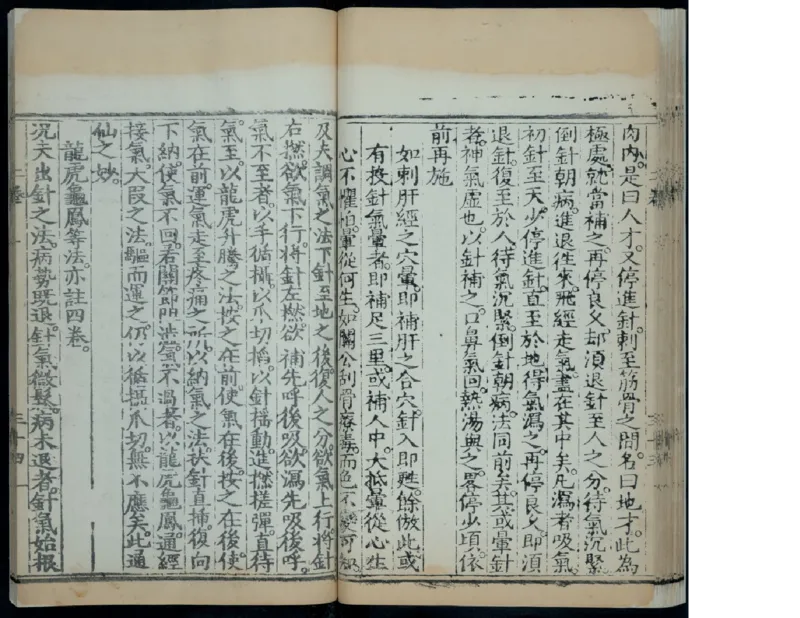 肉內。是曰人才。又停進針。刺至筋骨之間。名曰地才。此為
極處。就當補之。再停良久。却須退針至人之分。待氣沉緊。
倒針朝病。進退往來。飛經走氣。盡在其中矣。凡瀉者吸氣。
初針至天。少停進針。直至於地。得氣瀉之。再停良久。即須
退針。復至於人。待氣沉緊。倒針朝病。法同前矣。其或暈針
者。神氣虛也。以針補之。口鼻氣回。熱湯與之。畧停少頃。依
前再施
如刺肝經之穴暈。即補肝之合穴。針入即甦。餘倣此。或
有投針氣暈者。即補足三里。或補人中。大抵暈從心生
心不懼怕。暈從何生。如關公刮骨療毒。而色不變可知
及夫調氣之法。下針至地之後。復人之分。欲氣上行。將針
右撚。欲氣下行。將針左撚。欲補先呼後吸。欲瀉先吸後呼。
氣不至者。以手循攝。以爪切掐。以針搖動。進撚搓彈。直待
氣至。以龍虎升騰之法。按之在前。使氣在後。按之在後。使
氣在前。運氣走至疼痛之所。以納氣之法。扶針直插。復向
下納。使氣不回。若關節阻澁。氣不過者。以龍虎龜鳳。通經
接氣。大叚之法。驅而運之。仍以循攝爪切。無不應矣。此通
仙之妙。
龍虎龜鳳等法。亦註四卷。
況夫出針之法。病勢既退。針氣微鬆。病未退者。針氣始根